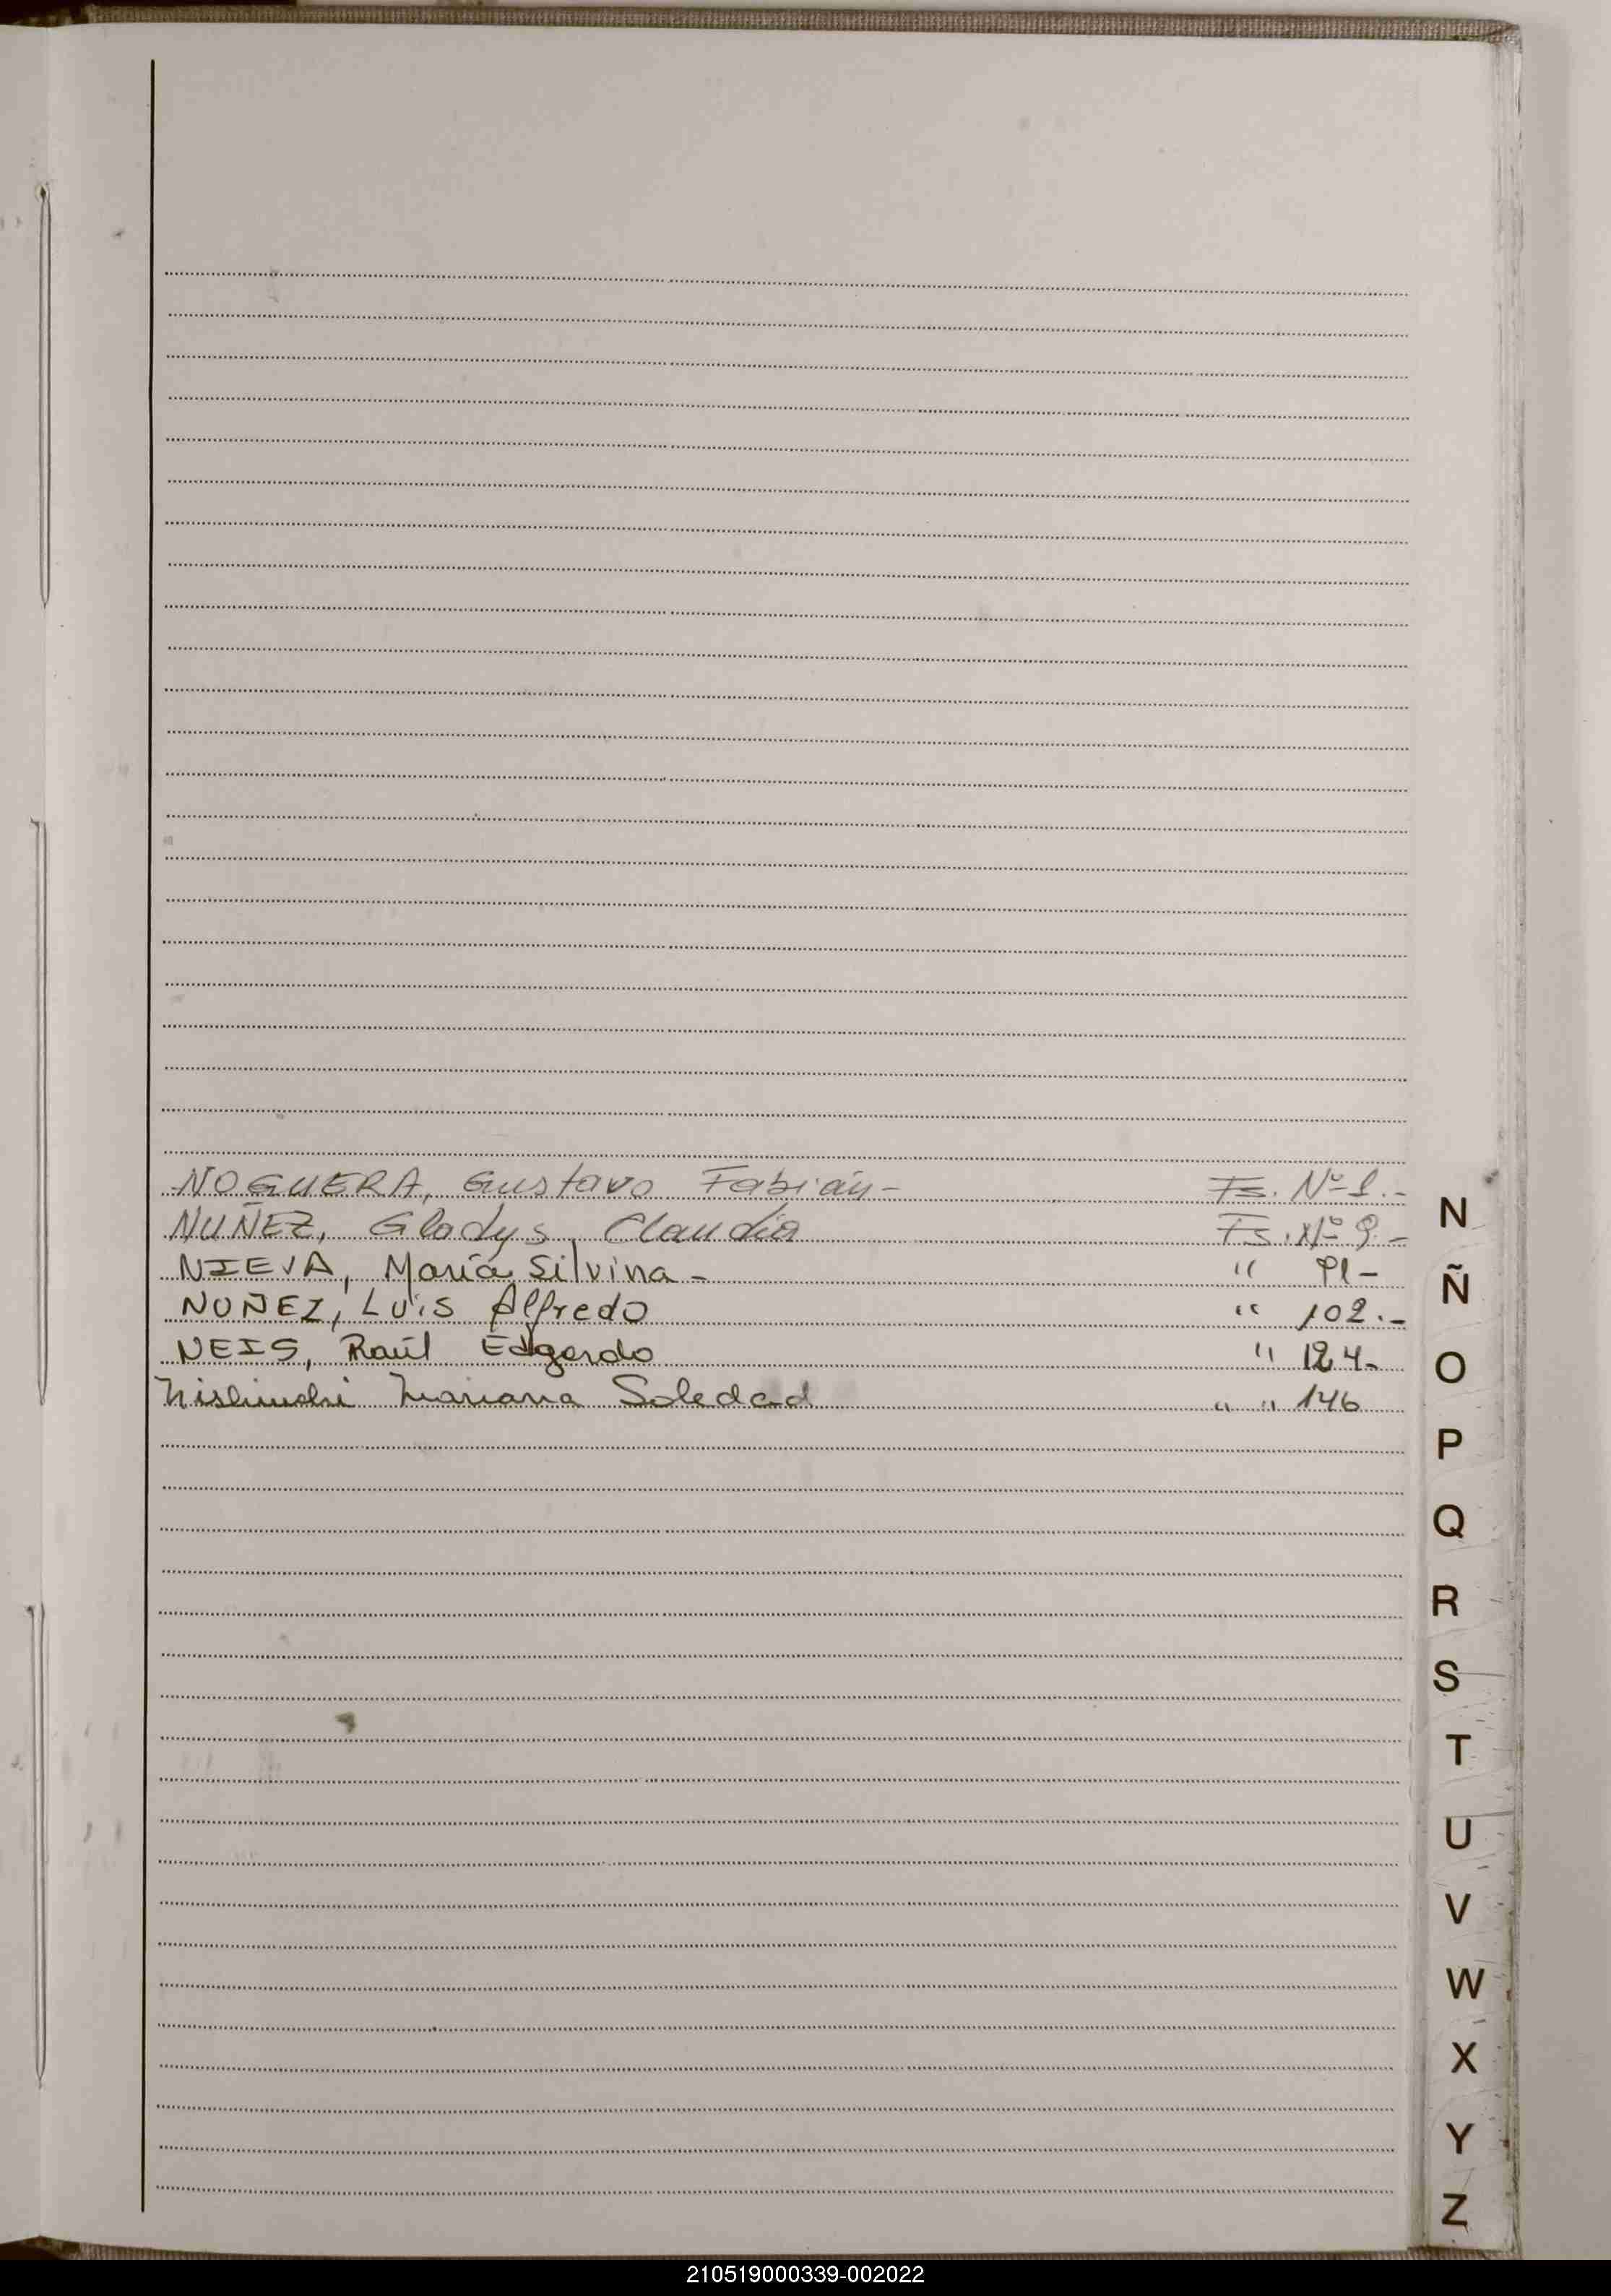 NOGUERA, Gustavo Fabián - Fs. Nº 1.-
NUÑEZ, Gladys Claudia Fs. Nº 9.-
NIEVA, María Silvina - " 91 -
NUÑEZ, Luis Alfredo " 102.-
NEIS, Raúl Edgardo " 124-
Mariana Soledad " " 146
N
Ñ
O
P
Q
R
S
T
U
V
W
X
Y
Z
210519000339-002022